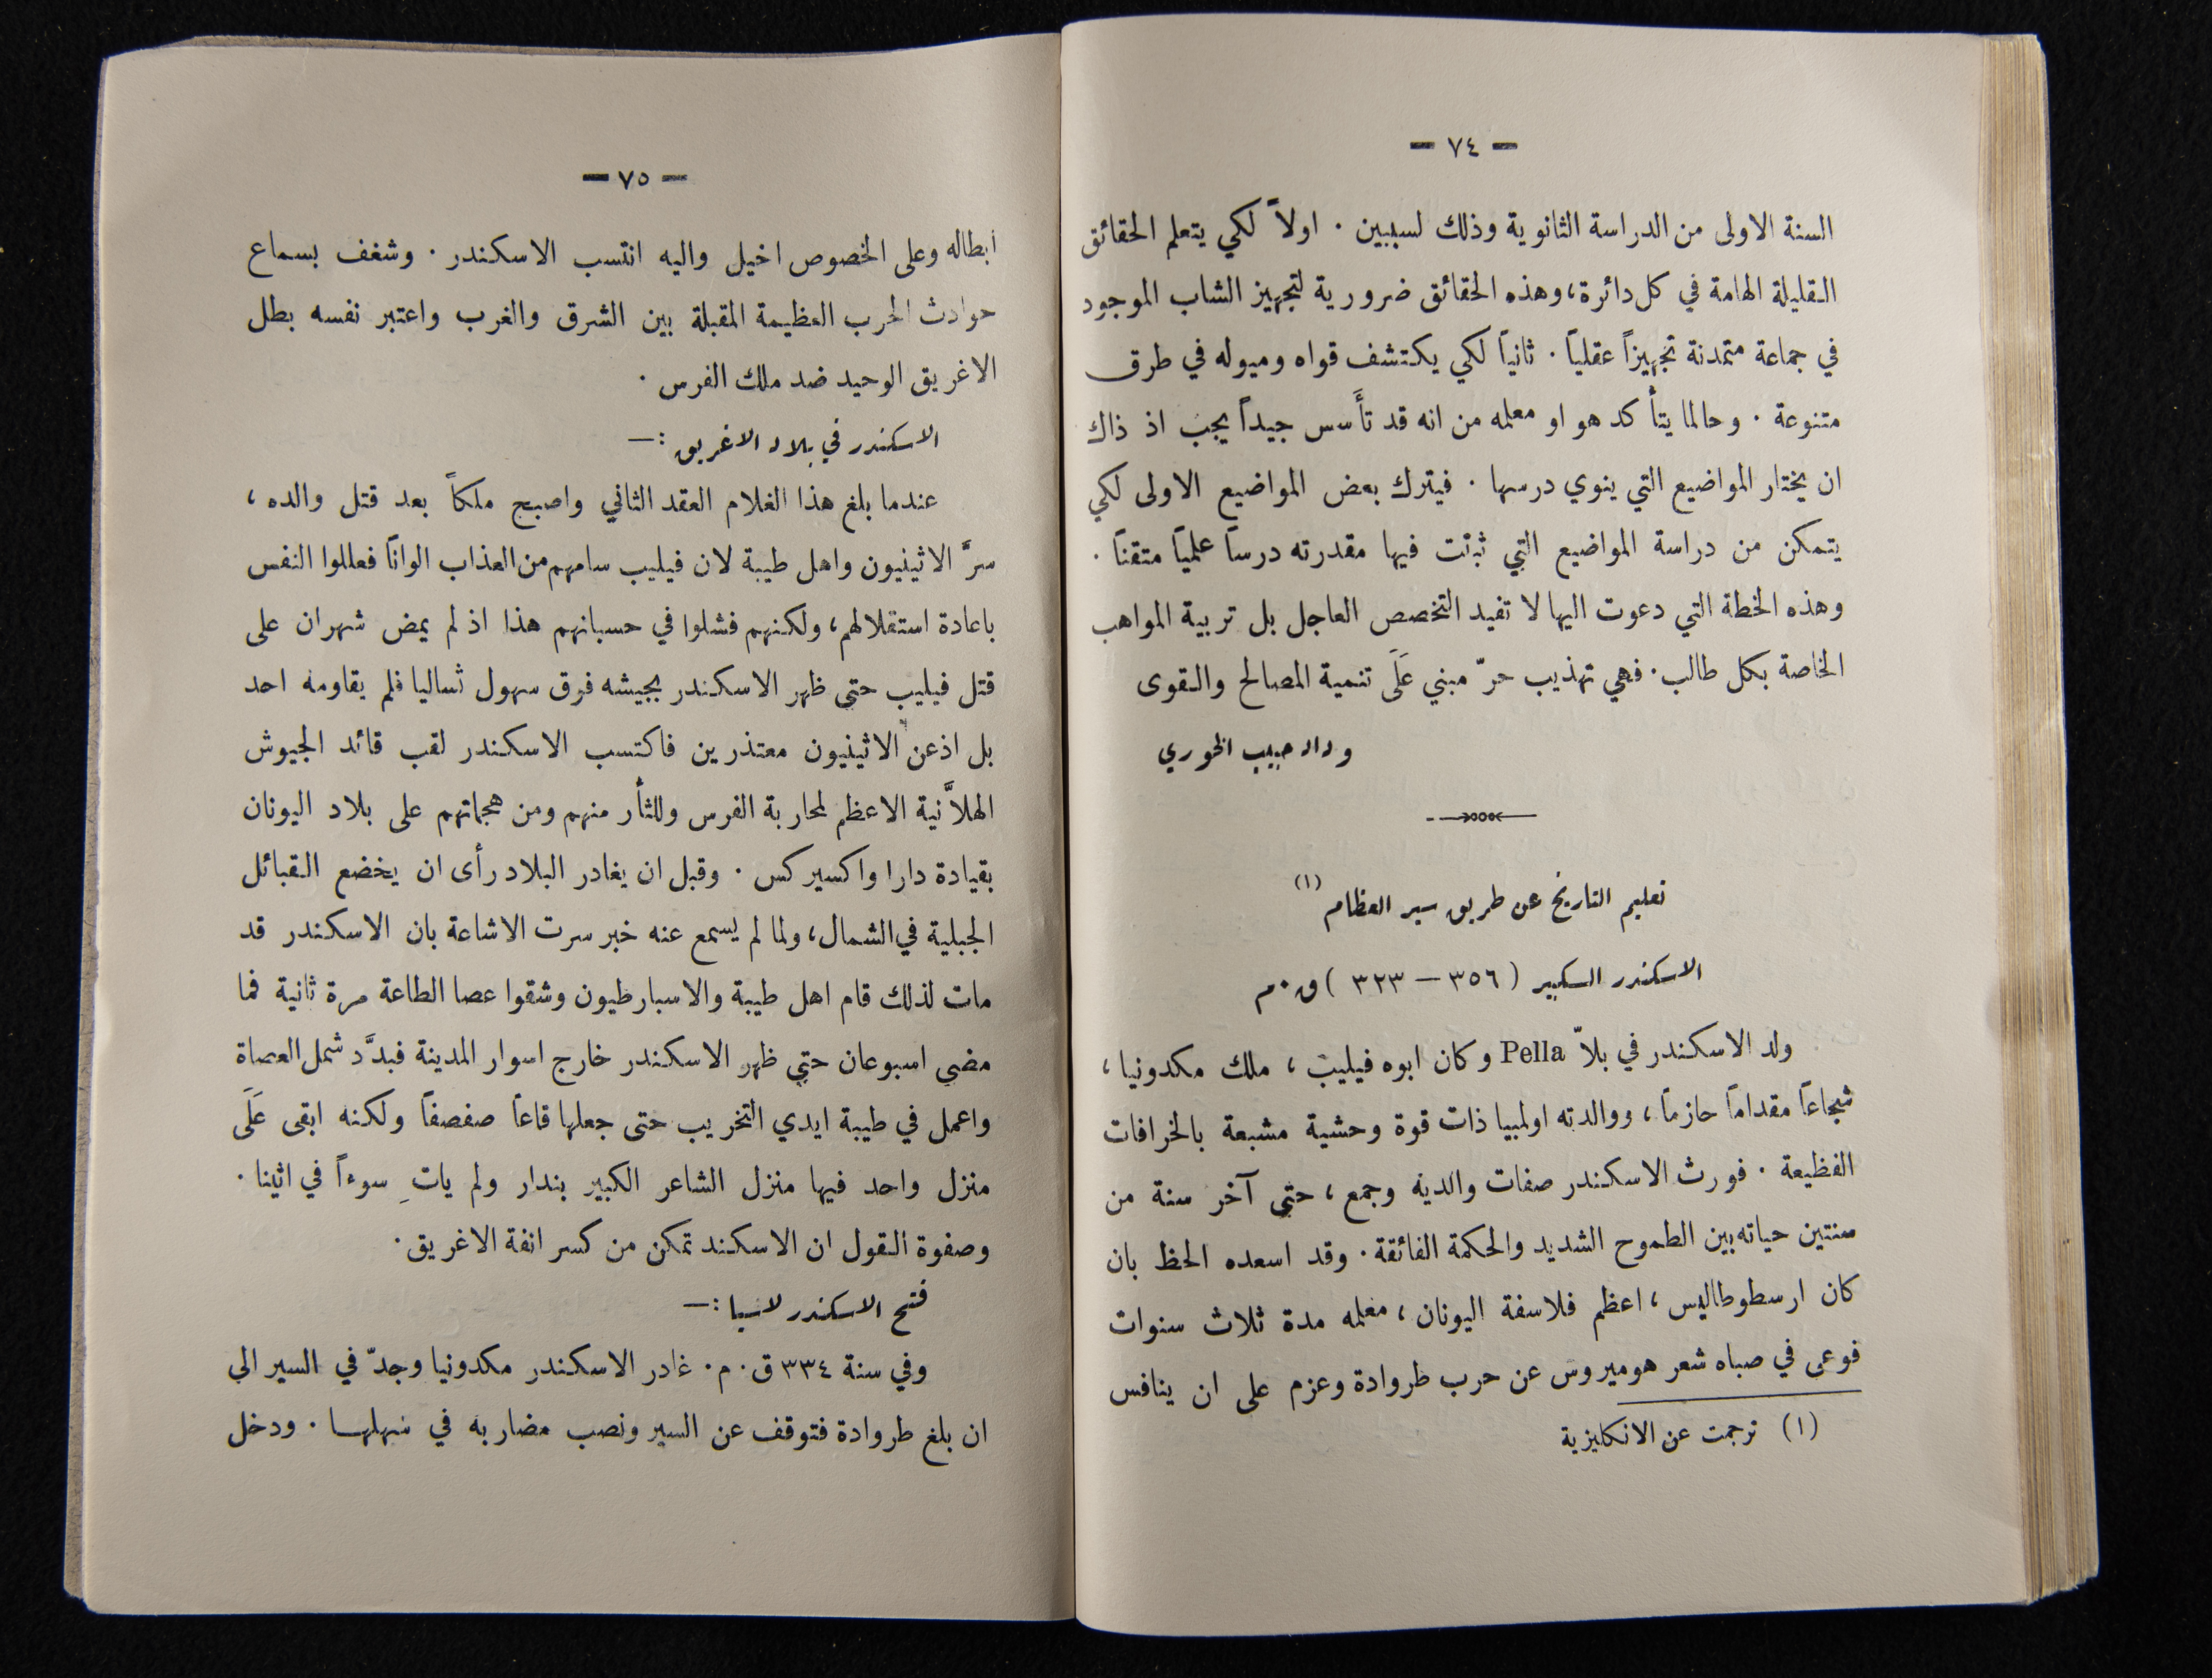 — ٧٤ —
السنة الاولى من الدراسة الثانوية وذلك لسببين . اولاً لكي يتعلم الحقائق
القليلة الهامة في كل دائرة، وهذه الحقائق ضرورية لتجهيز الشاب الموجود
في جماعة متمدنة تجهيزاً عقلياً . ثانياً لكي يكتشف قواه وميوله في طرق
متنوعة . وحالما يتأكد هو او معلمه من انه قد تأسس جيداً يجب اذ ذاك
ان يختار المواضيع التي ينوي درسها . فيترك بعض المواضيع الاولى لكي
يتمكن من دراسة المواضيع التي ثبتت فيها مقدرته درساً علمياً متقناً .
وهذه الخطة التي دعوت اليها لا تفيد التخصص العاجل بل تربية المواهب
الخاصة بكل طالب . فهي تهذيب حرّ مبني عَلَى تنمية المصالح والقوى
وداد حبيب الخوري
تعليم التاريخ عن طريق سير العظام (١)
الاسكندر الكبير ( ٣٥٦ — ٣٢٣ ) ق . م
ولد الاسكندر في بلاّ Pella وكان ابوه فيليب ، ملك مكدونيا ،
شجاعاً مقداماً حازماً ، ووالدته اولمبيا ذات قوة وحشية مشبعة بالخرافات
الفظيعة . فورث الاسكندر صفات والديه وجمع ، حتى آخر سنة من
سنتين حياته بين الطموح الشديد والحكمة الفائقة . وقد اسعده الحظ بان
كان ارسطوطاليس ، اعظم فلاسفة اليونان ، معلمه مدة ثلاث سنوات
فوعى في صباه شعر هوميروس عن حرب طروادة وعزم على ان ينافس
(١) ترجمت عن الانكليزية
— ٧٥ —
ابطاله وعلى الخصوص اخيل واليه انتسب الاسكندر . وشغف بسماع
حوادث الحرب العظيمة المقبلة بين الشرق والغرب واعتبر نفسه بطل
الاغريق الوحيد ضد ملك الفرس .
الاسكندر في بلاد الاغريق :—
عندما بلغ هذا الغلام العقد الثاني واصبح ملكاً بعد قتل والده ،
سرَّ الاثينيون واهل طيبة لان فيليب سامهم من العذاب الواناً فعللوا النفس
باعادة استقلالهم، ولكنهم فشلوا في حسبانهم هذا اذ لم يمض شهران على
قتل فيليب حتى ظهر الاسكندر بجيشه فوق سهول ثساليا فلم يقاومه احد
بل اذعن الاثينيون معتذرين فاكتسب الاسكندر لقب قائد الجيوش
الهلاَّنية الاعظم لمحاربة الفرس وللثأر منهم ومن هجماتهم على بلاد اليونان
بقيادة دارا واكسيركس . وقبل ان يغادر البلاد رأى ان يخضع القبائل
الجبلية في الشمال، ولما لم يسمع عنه خبر سرت الاشاعة بان الاسكندر قد
مات لذلك قام اهل طيبة والاسبارطيون وشقوا عصا الطاعة مرة ثانية فما
مضى اسبوعان حتى ظهر الاسكندر خارج اسوار المدينة فبدَّد شمل العصاة
واعمل في طيبة ايدي التخريب حتى جعلها قاعاً صفصفاً ولكنه ابقى عَلَى
منزل واحد فيها منزل الشاعر الكبير بندار ولم ياتِ سوءاً في اثينا .
وصفوة القول ان الاسكند تمكن من كسر انفة الاغريق .
فتح الاسكندر لاسيا :—
وفي سنة ٣٣٤ ق . م . غادر الاسكندر مكدونيا وجدّ في السير الى
ان بلغ طروادة فتوقف عن السير ونصب مضاربه في سهلها . ودخل